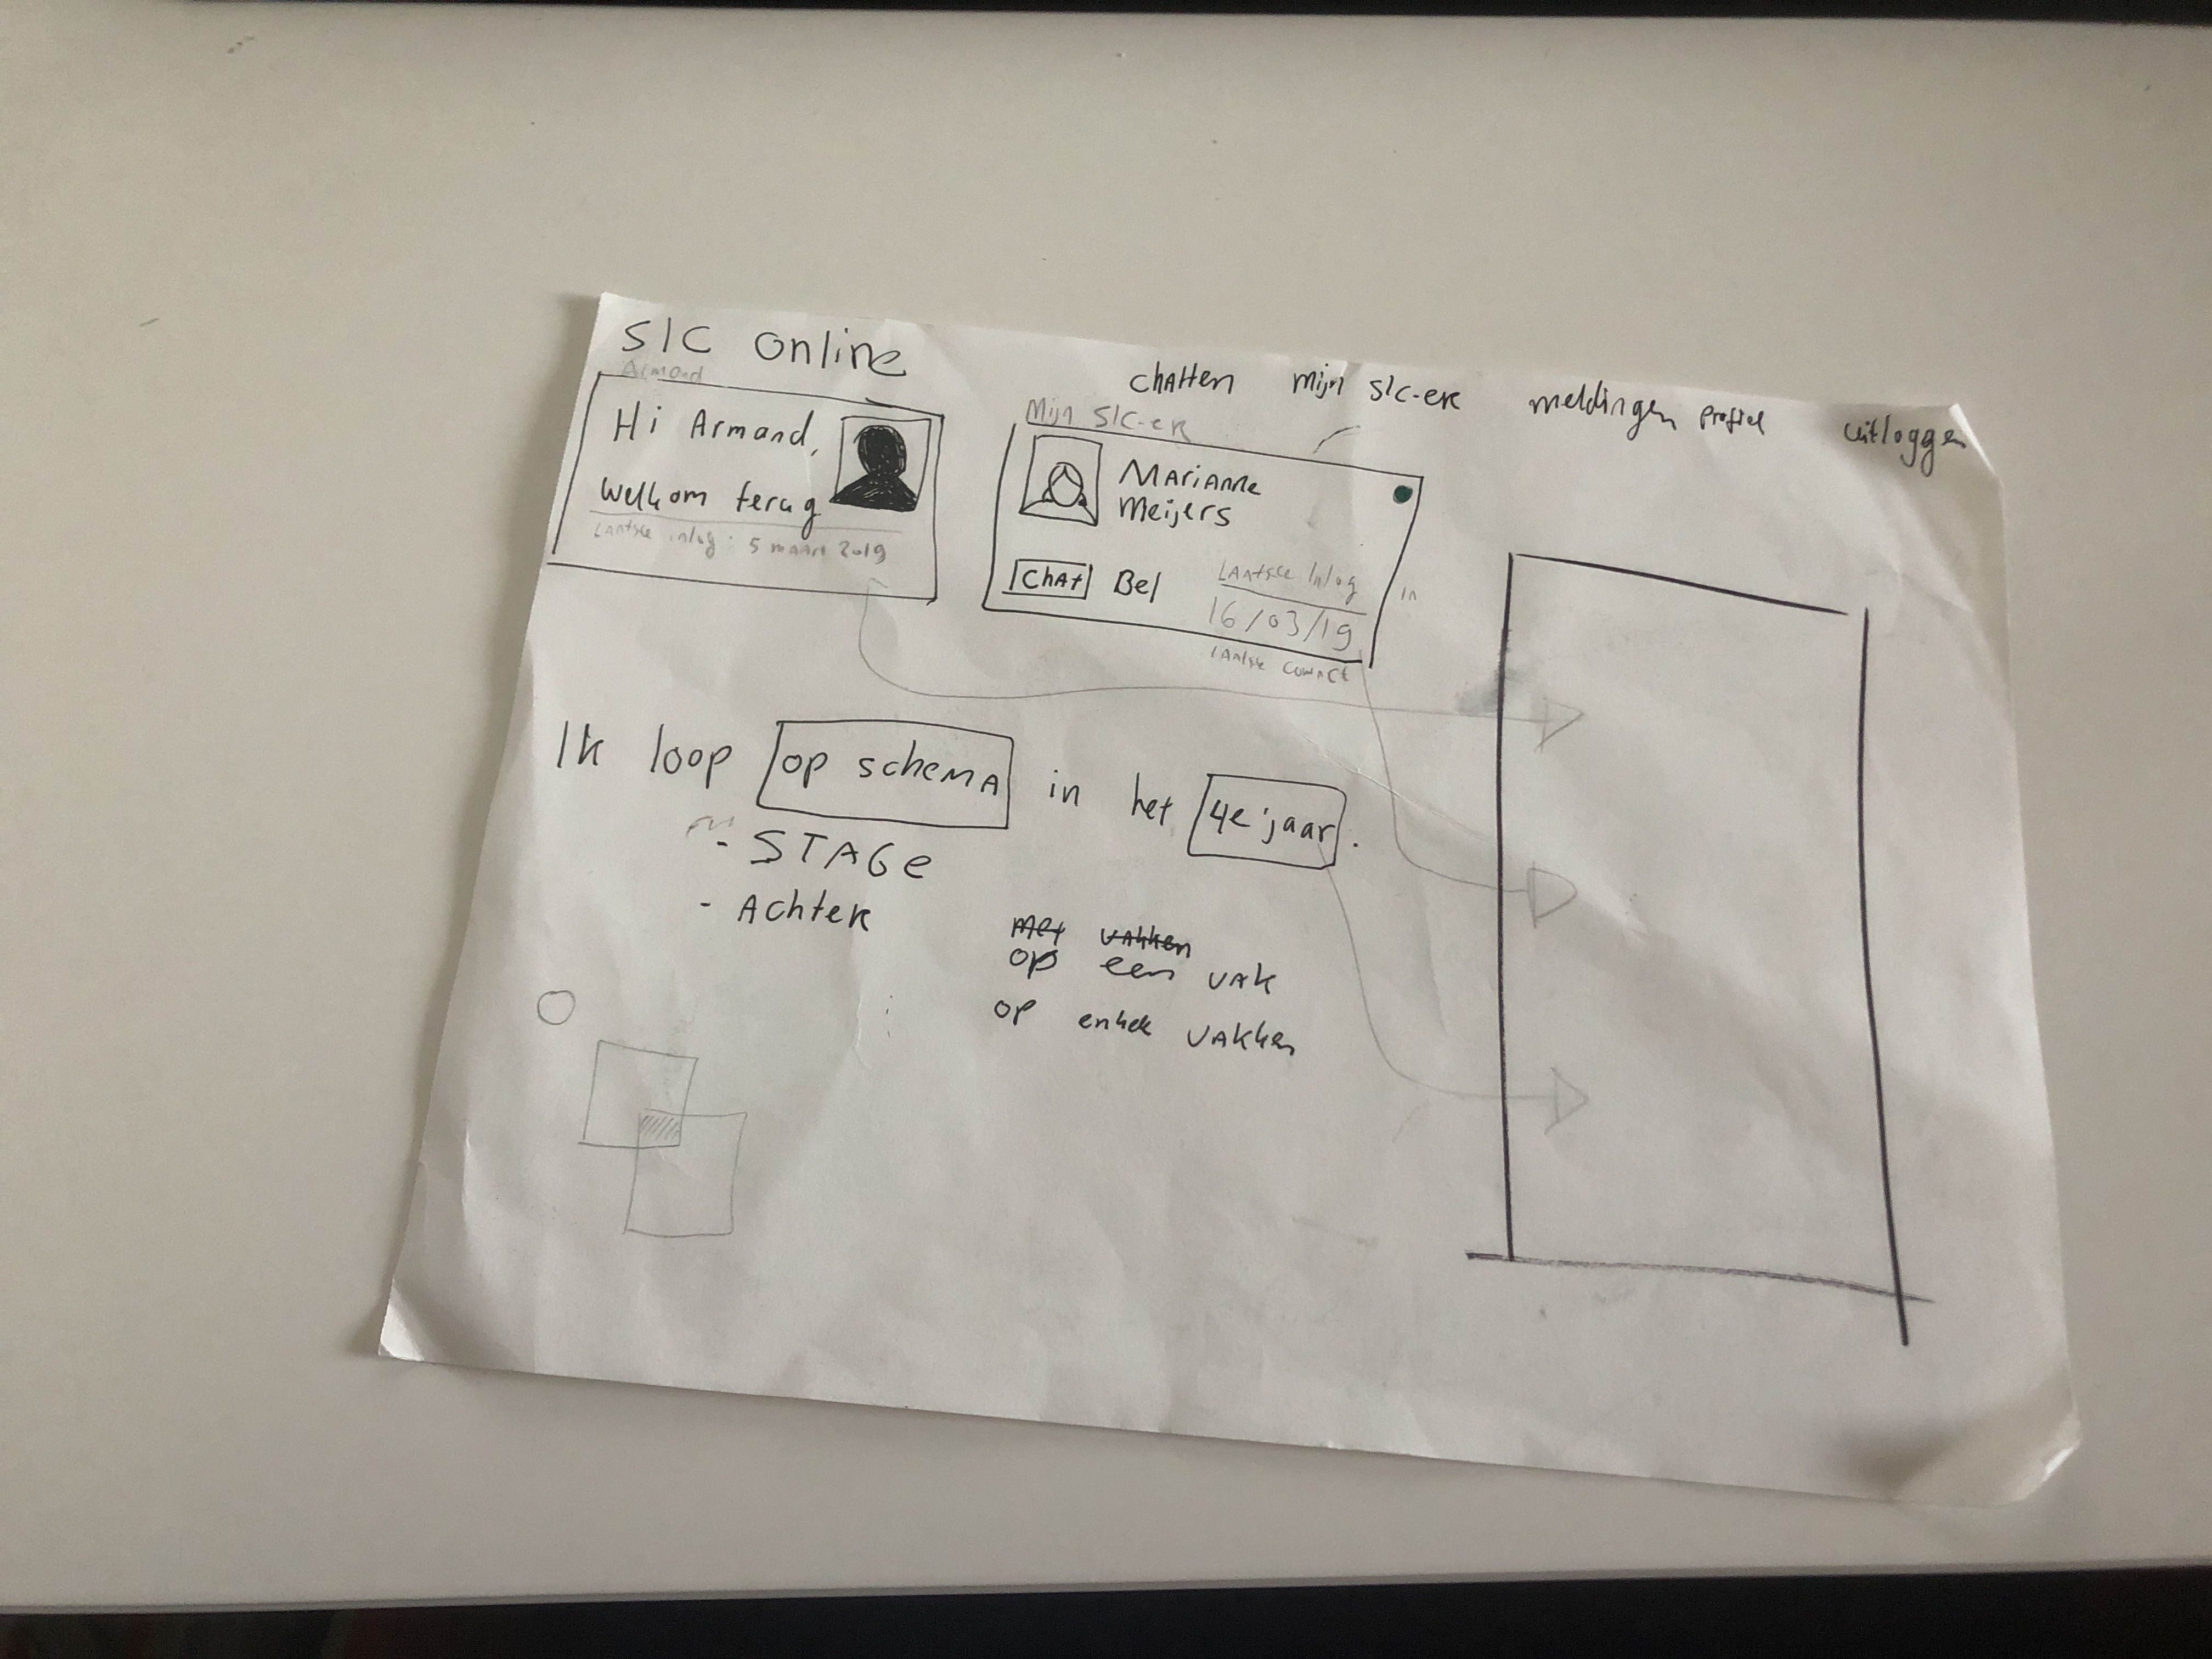 SIC online
chatten mijn SIC-er meldingen profiel uitloggen
Armand
Hi Armand,
Welkom terug
Laatste inlog: 5 maart 2019
Mijn SIC-er
Marianne
Meijers
Chat Bel
Laatste inlog
16/03/19
in
Ik loop op schema in het 4e jaar.
- STAGE
- Achter
met vakken
op een vak
op enkele vakken